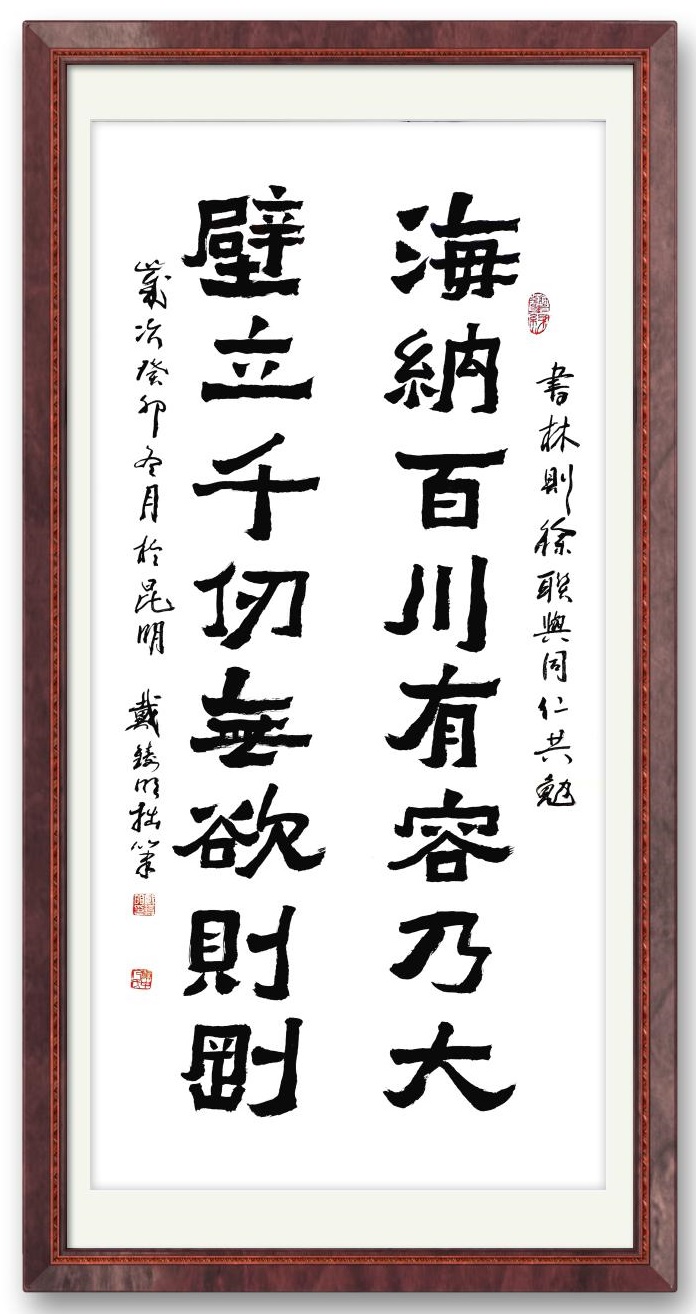 書林則徐聯與同仁共勉
海納百川有容乃大
壁立千仞無欲則剛
歲次癸卯冬月於昆明
戴鑄明拙筆